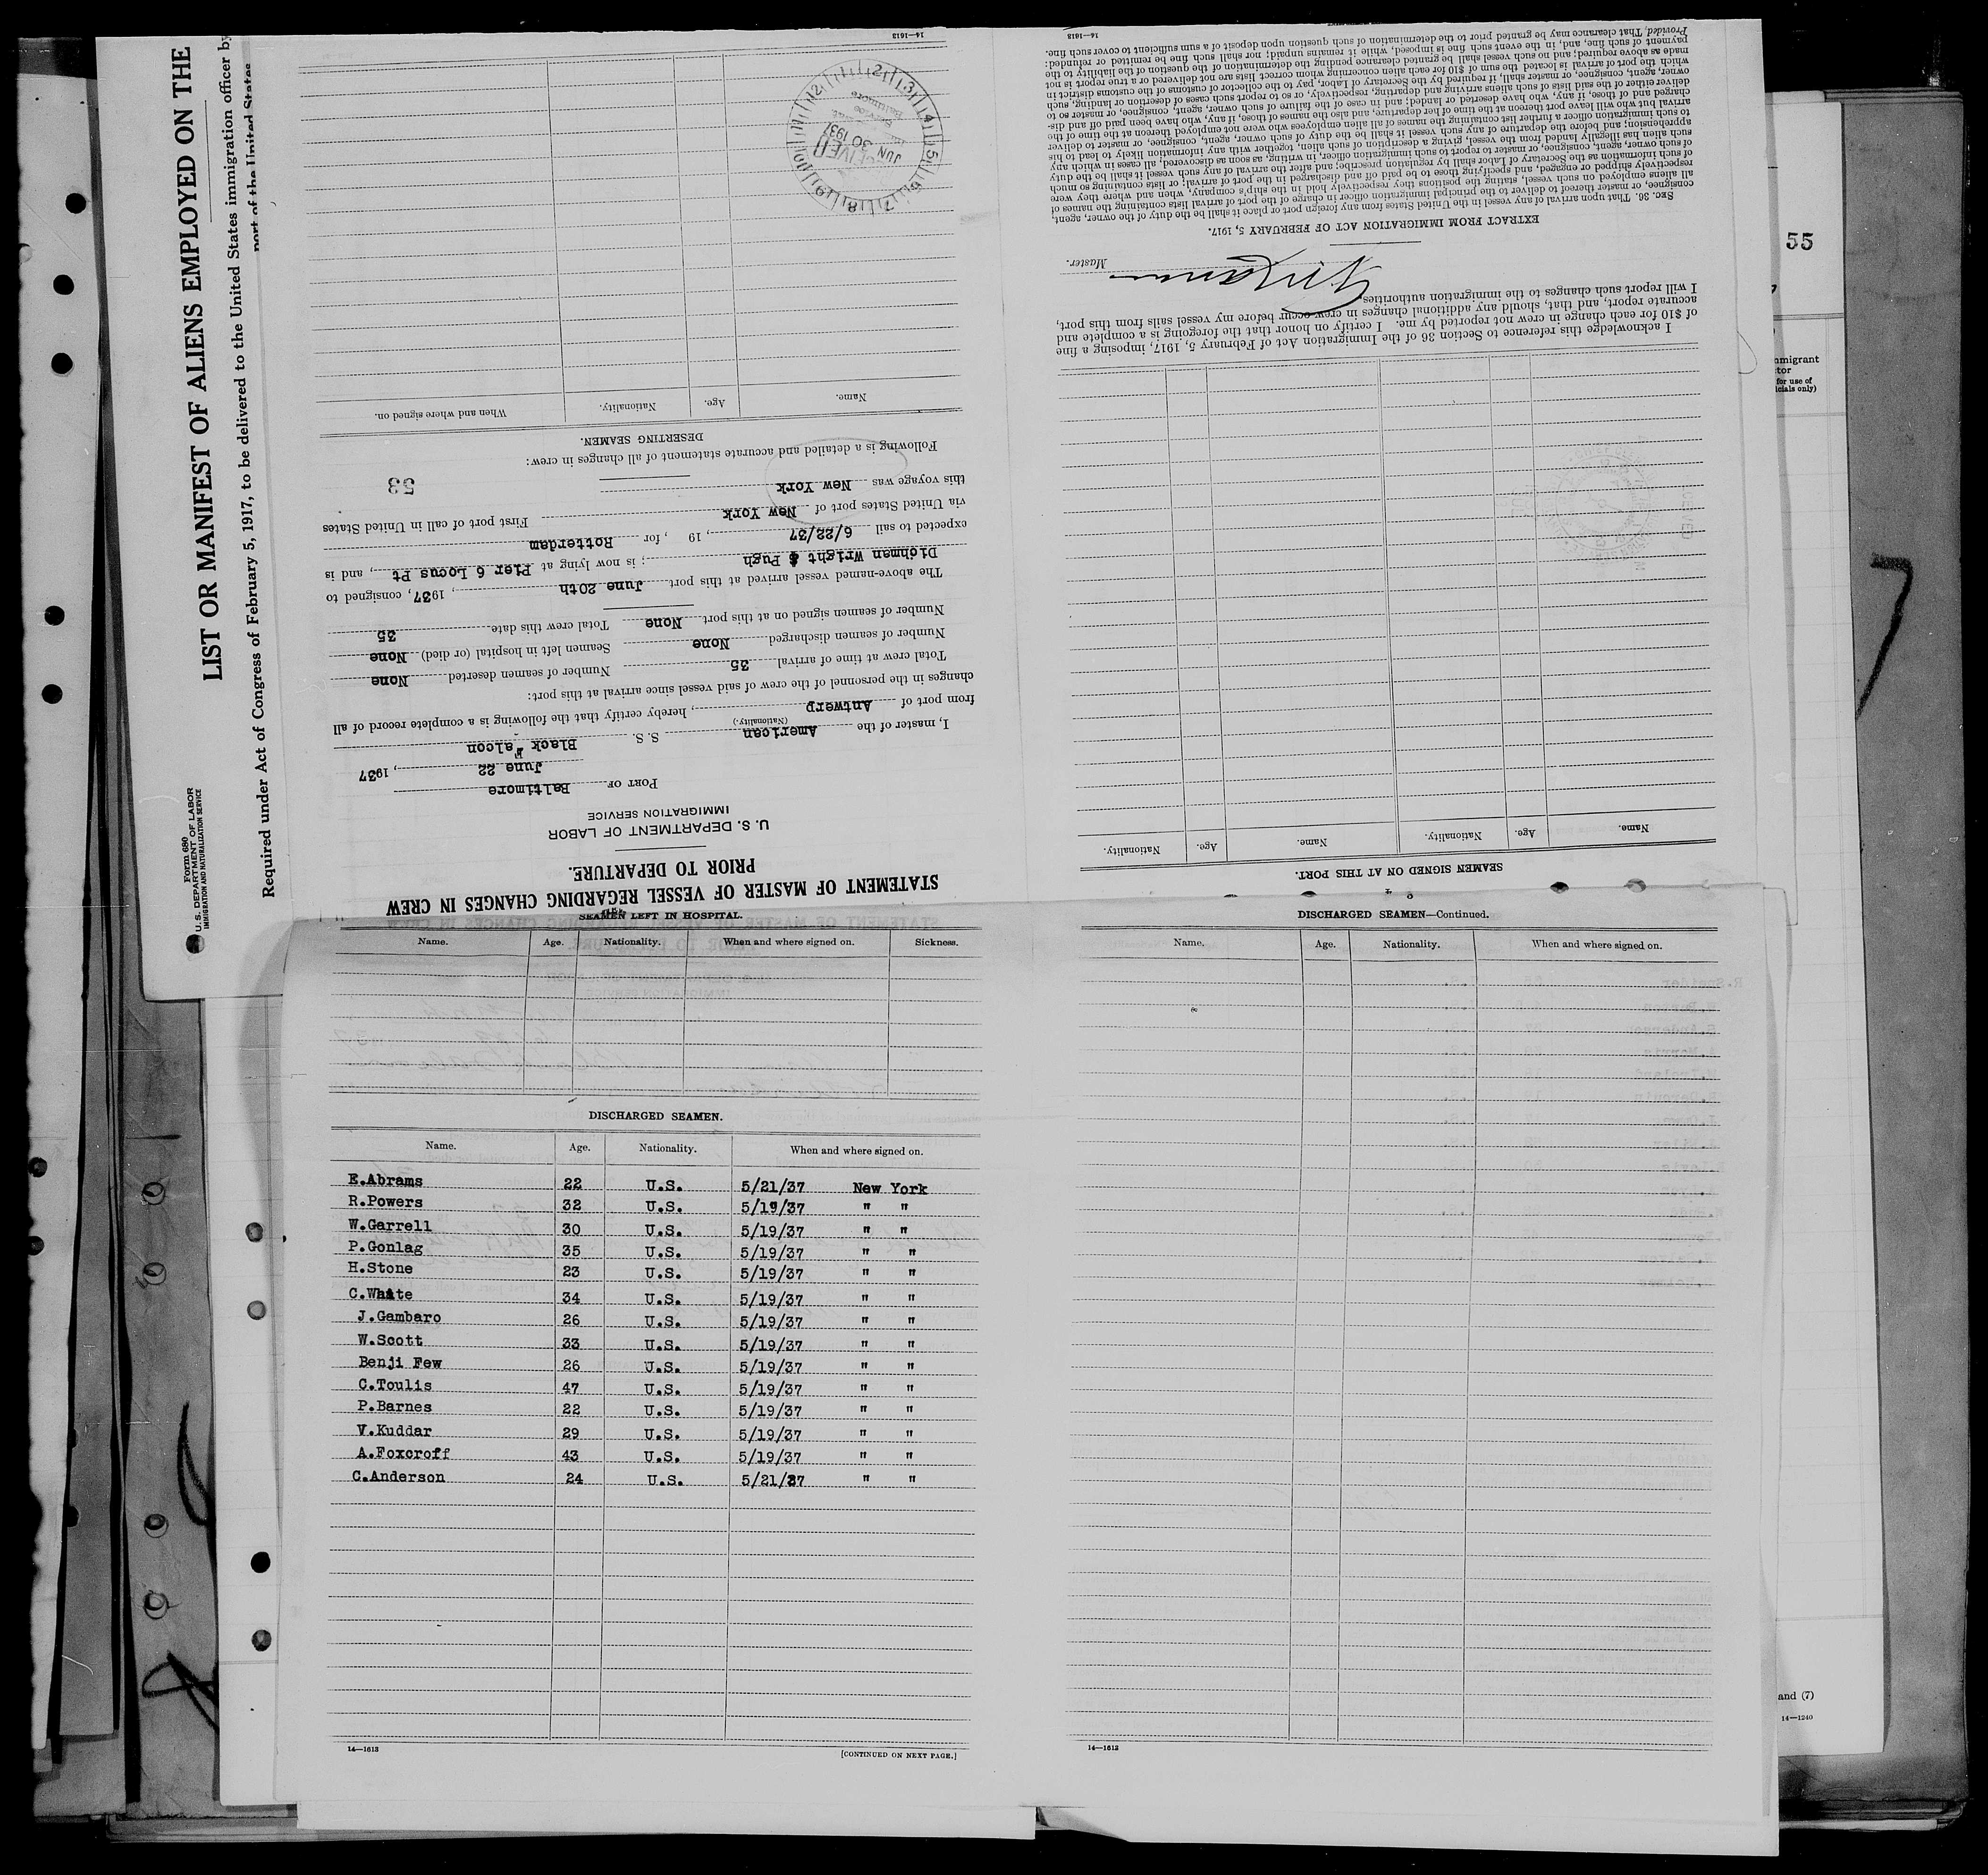 Form 680
U. S. DEPARTMENT OF LABOR
IMMIGRATION AND NATURALIZATION SERVICE
LIST OR MANIFEST OF ALIENS EMPLOYED ON THE
Required under Act of Congress of February 5, 1917, to be delivered to the United States immigration officer by
port of the United States
STATEMENT OF MASTER OF VESSEL REGARDING CHANGES IN CREW
PRIOR TO DEPARTURE.
U. S. DEPARTMENT OF LABOR
IMMIGRATION SERVICE
PORT OF Baltimore
June 22, 1937
I, master of the American S. S. Black Falcon
(Nationality.)
from port of Antwerp, hereby certify that the following is a complete record of all
changes in the personnel of the crew of said vessel since arrival at this port:
Total crew at time of arrival 35 Number of seamen deserted None
Number of seamen discharged None Seamen left in hospital (or died) None
Number of seamen signed on at this port None Total crew this date 35
The above-named vessel arrived at this port June 20th, 1937, consigned to
Dichmen Wright & Pugh ; is now lying at Pier 6 Locus Pt, and is
expected to sail 6/22/37, 19 , for Rotterdam
via United States port of New York First port of call in United States
this voyage was New York
53
Following is a detailed and accurate statement of all changes in crew:
DESERTING SEAMEN.
Name. Age. Nationality. When and where signed on.
JUN 30 1937
14—1613
SEAMEN SIGNED ON AT THIS PORT.
Name. Age. Nationality. Name. Age. Nationality.
I acknowledge this reference to Section 36 of the Immigration Act of February 5, 1917, imposing a fine
of $10 for each change in crew not reported by me. I certify on honor that the foregoing is a complete and
accurate report, and that, should any additional changes in crew occur before my vessel sails from this port,
I will report such changes to the immigration authorities.
Master.
EXTRACT FROM IMMIGRATION ACT OF FEBRUARY 5, 1917.
SEC. 36. That upon arrival of any vessel in the United States from any foreign port or place it shall be the duty of the owner, agent,
consignee, or master thereof to deliver to the principal immigration officer in charge of the port of arrival lists containing the names of
all aliens employed on such vessel, stating the positions they respectively hold in the ship's company, when and where they were
respectively shipped or engaged, and specifying those to be paid off and discharged in the port of arrival; or lists containing so much
of such information as the Secretary of Labor shall by regulation prescribe; and after the arrival of any such vessel it shall be the duty
of such owner, agent, consignee, or master to report to such immigration officer, in writing, as soon as discovered, all cases in which any
such alien has illegally landed from the vessel, giving a description of such alien, together with any information likely to lead to his
apprehension; and before the departure of any such vessel it shall be the duty of such owner, agent, consignee, or master to deliver
to such immigration officer a further list containing the names of all alien employees who were not employed thereon at the time of the
arrival but who will leave port thereon at the time of her departure, and also the names of those, if any, who have been paid off and dis-
charged and of those, if any, who have deserted or landed; and in case of the failure of such owner, agent, consignee, or master so to
deliver either of the said lists of such aliens arriving and departing, respectively, or so to report such cases of desertion or landing, such
owner, agent, consignee, or master shall, if required by the Secretary of Labor, pay to the collector of customs of the customs district in
which the port of arrival is located the sum of $10 for each alien concerning whom correct lists are not delivered or a true report is not
made as above required; and no such vessel shall be granted clearance pending the determination of the question of the liability to the
payment of such fine, and, in the event such fine is imposed, while it remains unpaid; nor shall such fine be remitted or refunded:
Provided, That clearance may be granted prior to the determination of such question upon deposit of a sum sufficient to cover such fine.
14—1613
SEAMEN LEFT IN HOSPITAL.
Name. Age. Nationality. When and where signed on. Sickness.
DISCHARGED SEAMEN.
Name. Age. Nationality. When and where signed on.
E.Abrams 22 U.S. 5/21/37 New York
R.Powers 32 U.S. 5/19/37 " "
W.Garrell 30 U.S. 5/19/37 " "
P.Gonlag 35 U.S. 5/19/37 " "
H.Stone 23 U.S. 5/19/37 " "
C.White 34 U.S. 5/19/37 " "
J.Gambaro 26 U.S. 5/19/37 " "
W.Scott 33 U.S. 5/19/37 " "
Benji Few 26 U.S. 5/19/37 " "
C.Toulis 47 U.S. 5/19/37 " "
P.Barnes 22 U.S. 5/19/37 " "
V.Kuddar 29 U.S. 5/19/37 " "
A.Foxcroff 43 U.S. 5/19/37 " "
C.Anderson 24 U.S. 5/21/37 " "
14—1613
[CONTINUED ON NEXT PAGE.]
DISCHARGED SEAMEN—Continued.
Name. Age. Nationality. When and where signed on.
14—1613
55
for use of
and (7)
14—1240